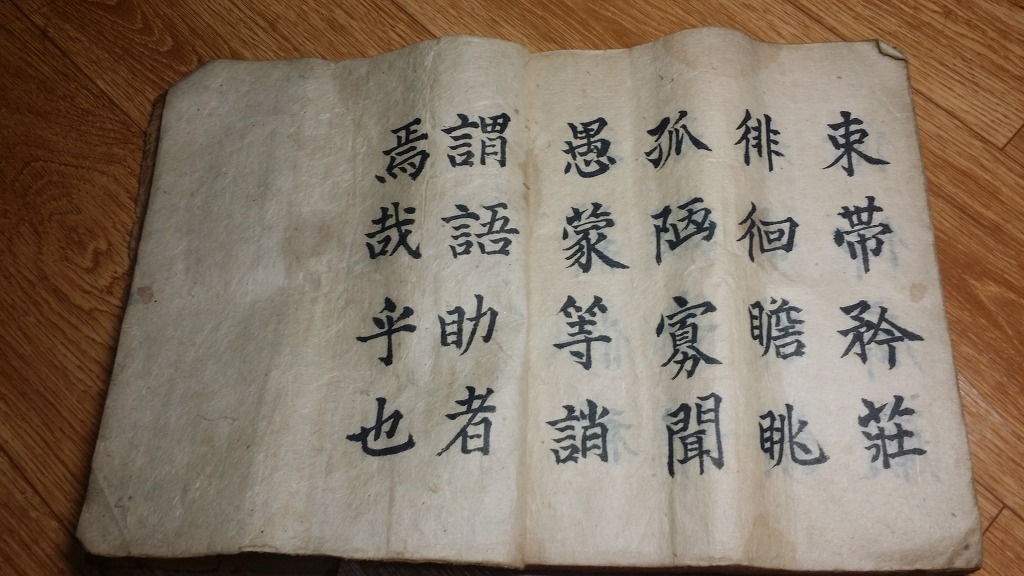 束帶矜莊
徘徊瞻眺
孤陋寡聞
愚蒙等誚
謂語助者
焉哉乎也